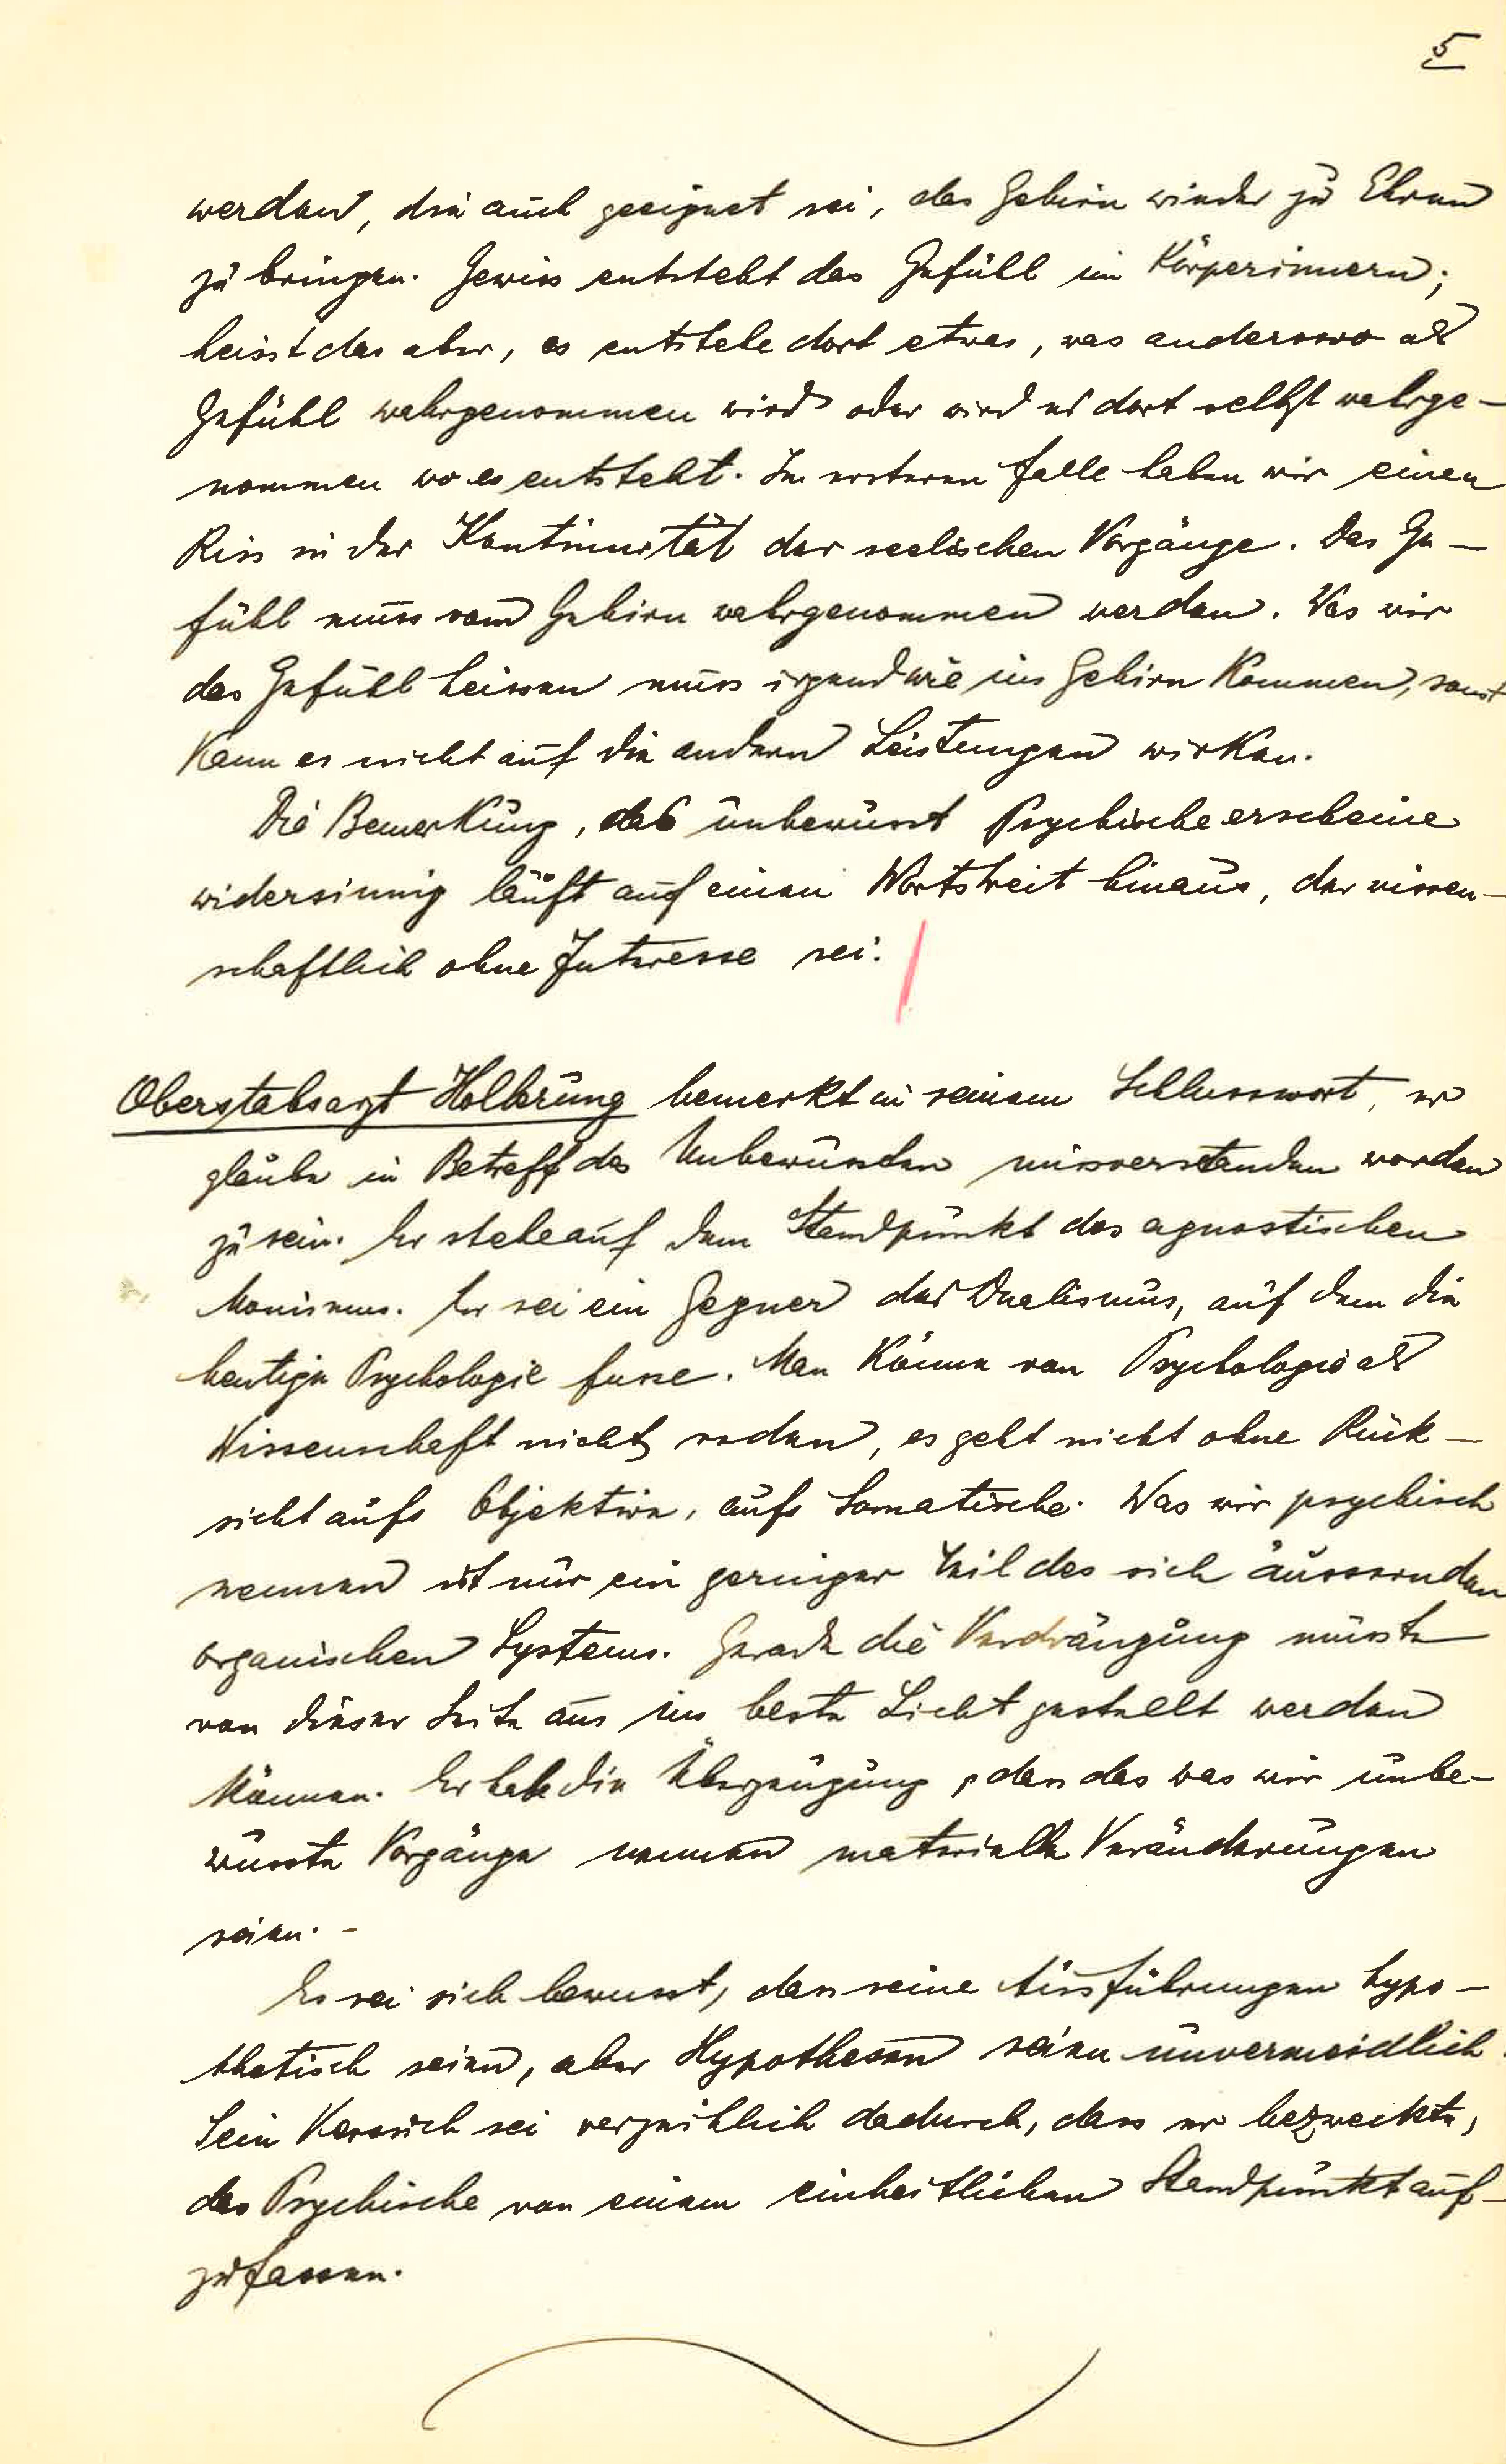 5
werden, die auch geeignet sei, das Gehirn wieder zu Ehren
zu bringen. Gewiss entsteht das Gefühl im Körperinnern;
heisst das aber, es entstehe dort etwas, was anderswo als
Gefühl wahrgenommen wird oder wird es dort selbst wahrge-
nommen wo es entsteht. Im ersteren Falle haben wir einen
Riss in der Kontinuität der seelischen Vorgänge. Das Ge-
fühl muss vom Gehirn wahrgenommen werden. Was wir
das Gefühl heissen muss irgendwie ins Gehirn kommen, sonst
kann es nicht auf die andern Leistungen wirken.
Die Bemerkung, das unbewusst Psychische erscheine
widersinnig läuft auf einen Wortstreit hinaus, der wissen-
schaftlich ohne Interesse sei.
Oberstabsarzt Hollerung bemerkt in seinem Schlusswort, er
glaube in Betreff des Unbewussten missverstanden worden
zu sein. Er stehe auf dem Standpunkt des agnostischen
Monismus. Er sei ein Gegner des Dualismus, auf dem die
heutige Psychologie fusse. Man könne von Psychologie als
Wissenschaft nicht reden, es geht nicht ohne Rück-
sicht aufs Objektive, aufs Somatische. Was wir psychisch
nennen ist nur ein geringer Teil des sich äussernden
organischen Systems. Gerade die Verdrängung müsste
von dieser Seite aus ins beste Licht gestellt werden
können. Er habe die Überzeugung, dass das was wir unbe-
wusste Vorgänge nennen materielle Veränderungen
seien. -
Er sei sich bewusst, dass seine Ausführungen hypo-
thetisch seien, aber Hypothesen seien unvermeidlich.
Sein Versuch sei verzeihlich dadurch, dass er bezweckte,
das Psychische von einem einheitlichen Standpunkt auf-
zufassen.